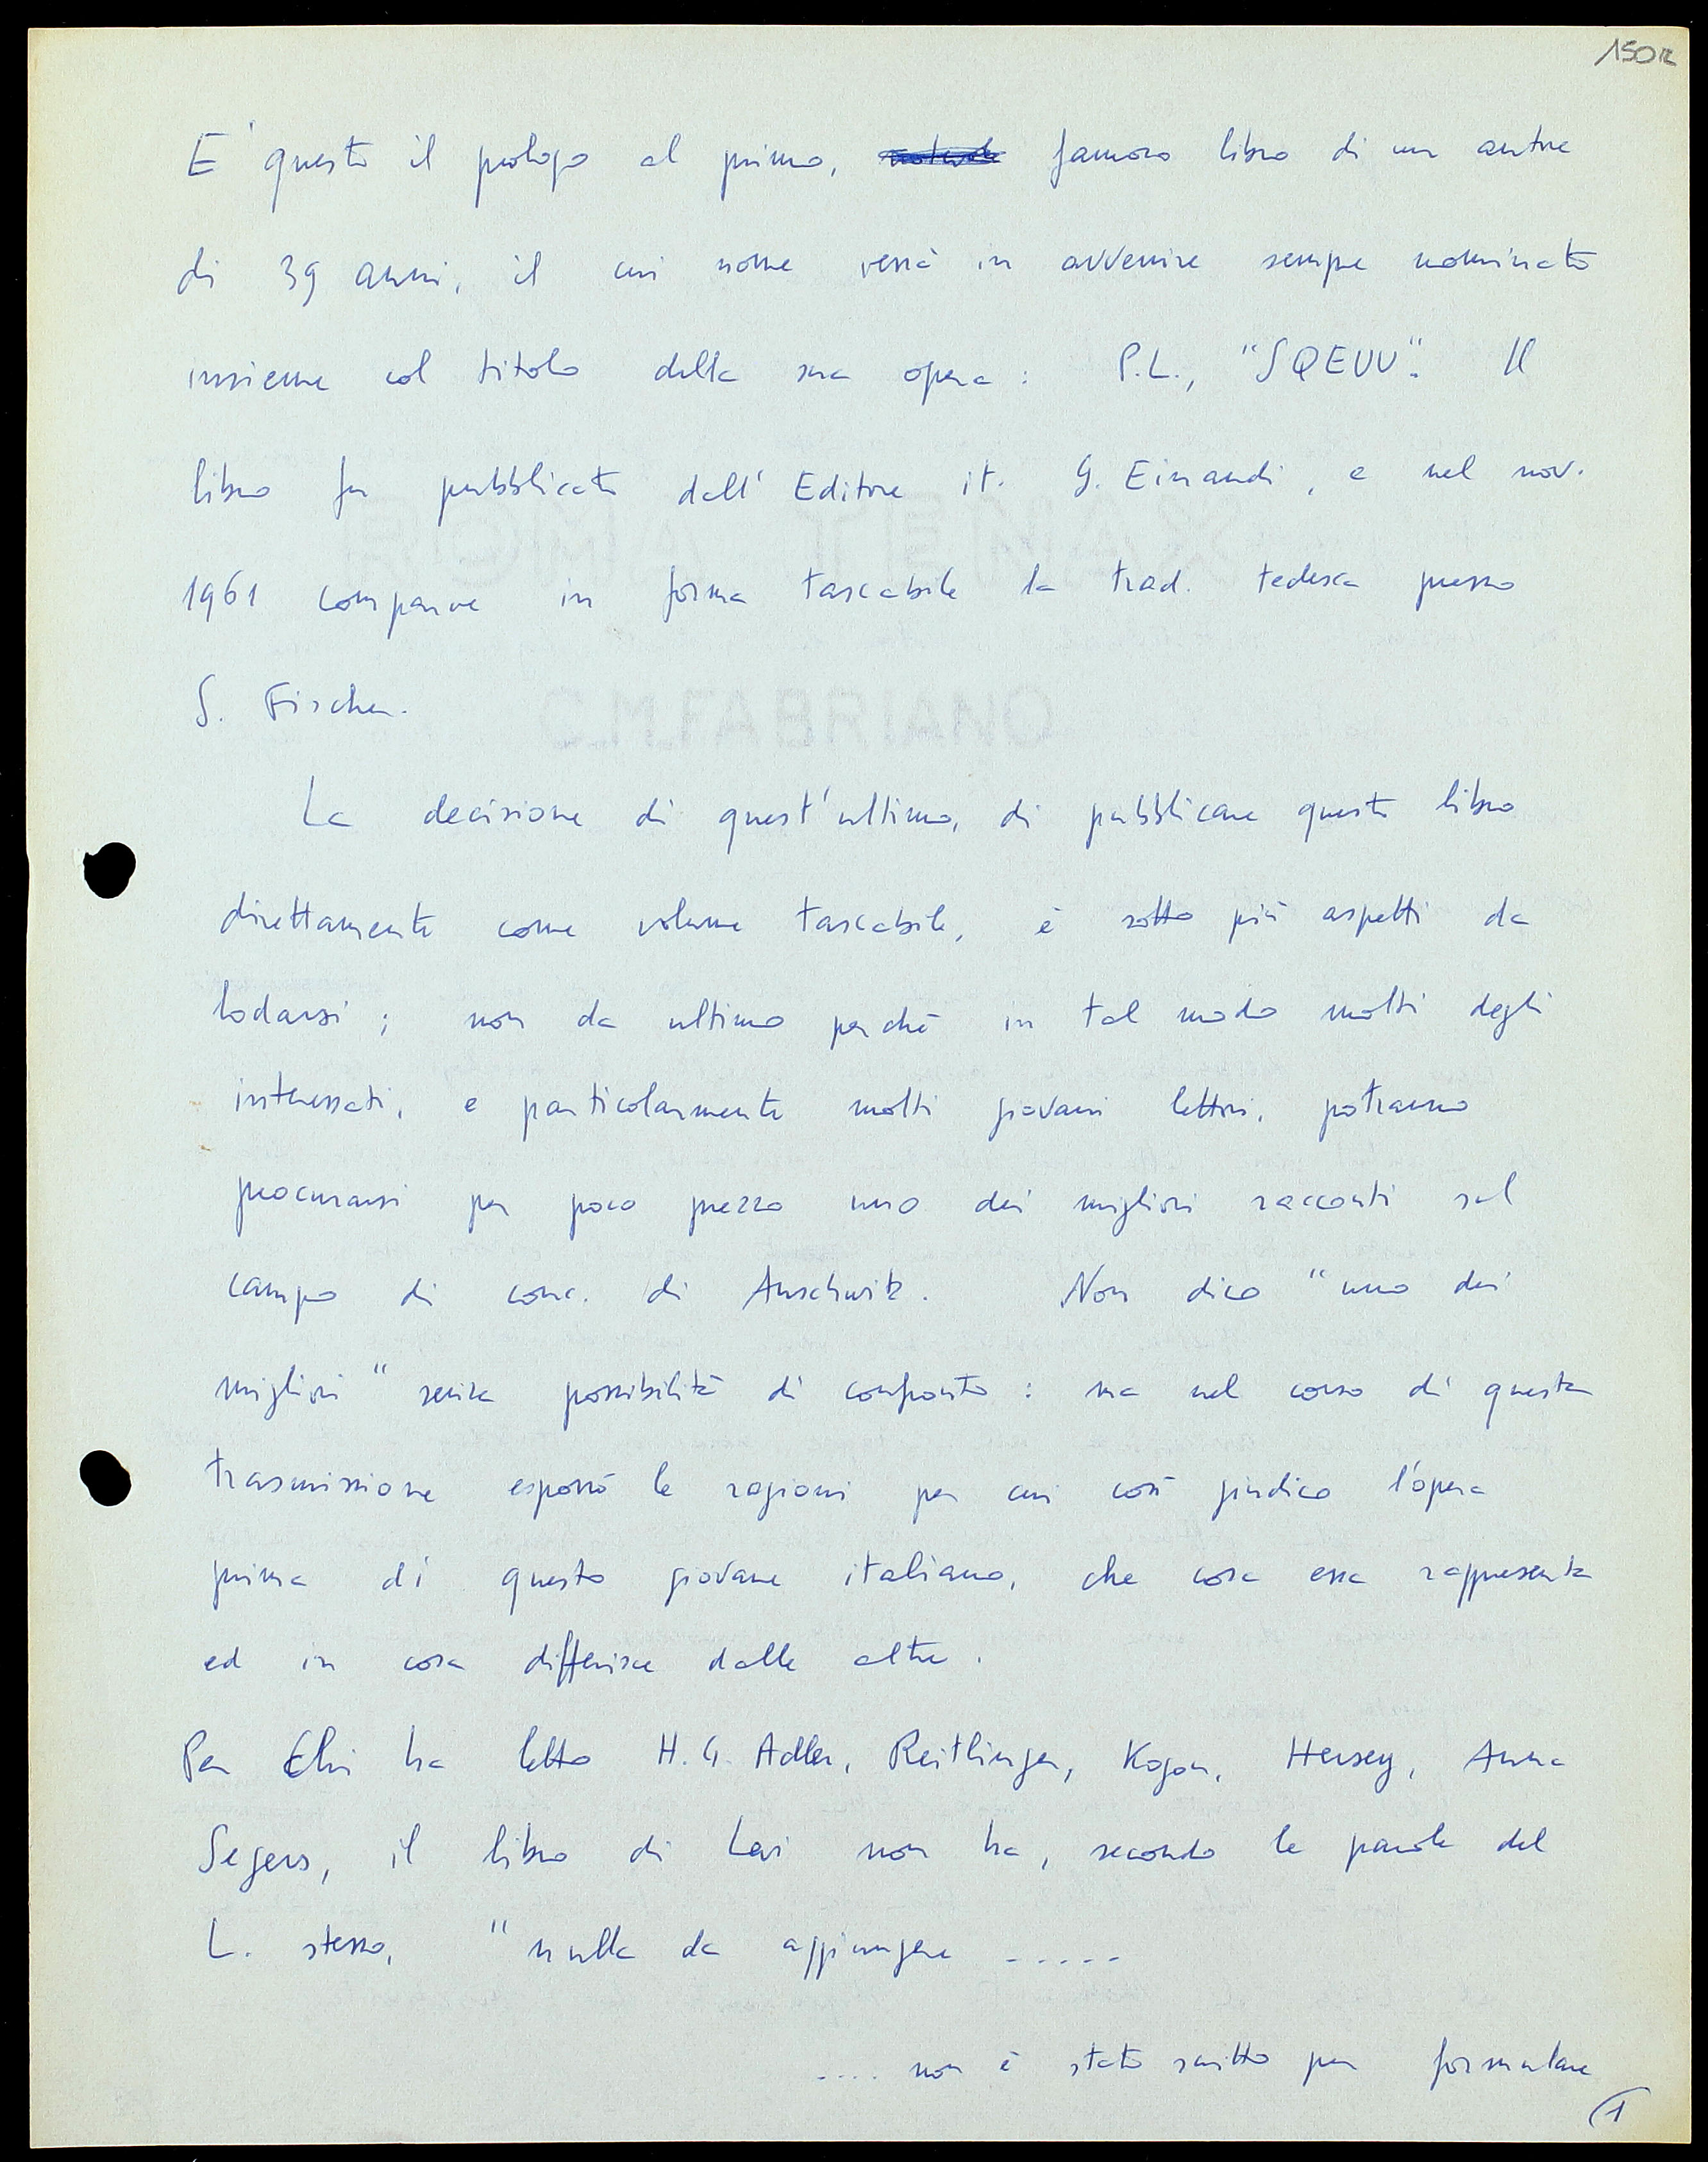 150R
E' questo il prologo al primo, famoso libro di un autore
di 39 anni, il cui nome verrà in avvenire sempre nominato
insieme col titolo della sua opera: P.L., "SQEUU". Il
libro fu pubblicato dall'Editore it. G. Einaudi, e nel nov.
1961 comparve in forma tascabile la trad. tedesca presso
S. Fischer.
La decisione di quest'ultimo, di pubblicare questo libro
direttamente come volume tascabile, è sotto più aspetti da
lodarsi; non da ultimo perchè in tal modo molti degli
interessati, e particolarmente molti giovani lettori, potranno
procurarsi per poco prezzo uno dei migliori racconti sul
campo di conc. di Auschwitz. Non dico "uno dei
migliori" senza possibilità di confronto: ma nel corso di questa
trasmissione esporrò le ragioni per cui così giudico l'opera
prima di questo giovane italiano, che cosa essa rappresenta
ed in cosa differisce dalle altre.
Per Chi ha letto H.G. Adler, Reitlinger, Kogon, Hersey, Anna
Segers, il libro di Levi non ha, secondo le parole del
L. stesso, "nulla da aggiungere .....
.... non è stato scritto per formulare
1